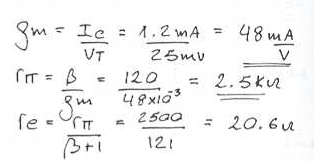 gm = Ic/VT = 1.2mA/25mV = 48 mA/V
rπ = β/gm = 120/48×10⁻³ = 2.5kΩ
re = rπ/β+1 = 2500/121 = 20.6Ω